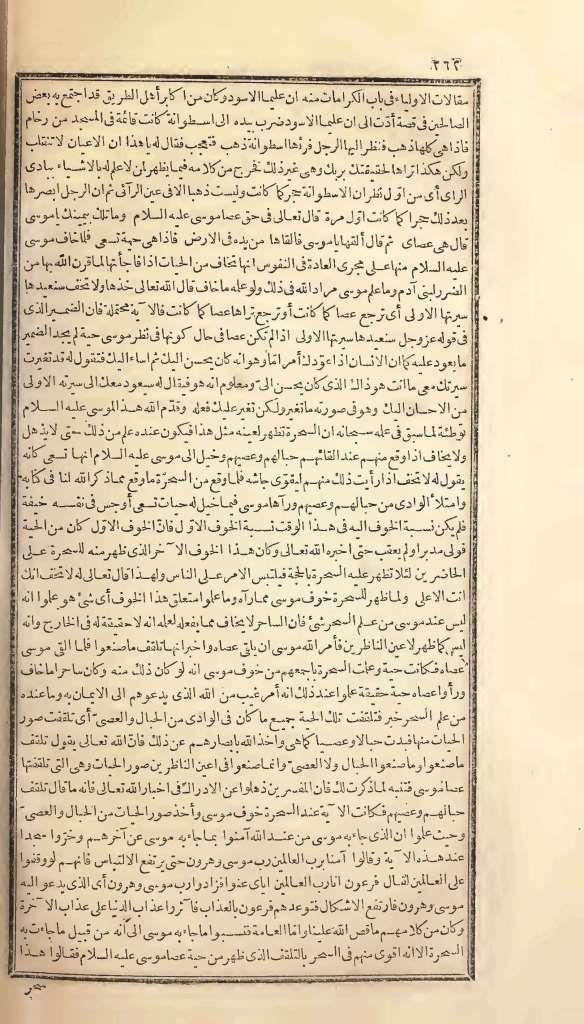 ٢٦٣
مقالات الاولياء فى باب الكرامات منه ان عليما الاسود وكان من أكابر أهل الطريق قد اجتمع به بعض
الصالحين فى قصة أدّت الى ان عليما الاسود ضرب بيده الى اسطوانة كانت قائمة فى المسجد من رخام
فاذا هى كلها ذهب فنظر اليها الرجل فرآها اسطوانة ذهب فتعجب فقال له يا هذا ان الاعيان لا تنقلب
ولكن هكذا تراها لحقيقتك بربك وهى غير ذلك فخرج من كلامه فيما يظهر لمن لا علم له بالاشياء ببادى
الراى أى من اوّل نظر ان الاسطوانة حجر كما كانت وليست ذهبا الا فى عين الرآئى ثم ان الرجل ابصرها
بعد ذلك حجرا كما كانت اوّل مرة قال تعالى فى حق عصا موسى عليه السلام وما تلك بيمينك يا موسى
قال هى عصاى ثم قال ألقها يا موسى فالقاها من يده فى الارض فاذا هى حية تسعى فلما خاف موسى
عليه السلام منها على مجرى العادة فى النفوس انها تخاف من الحيات اذا فاجأتها لما قرن الله بها من
الضرر لبنى آدم وما علم موسى مراد الله فى ذلك ولو علمه ما خاف قال الله تعالى خذها ولا تخف سنعيدها
سيرتها الاولى أى ترجع عصا كما كانت أو ترجع تراها عصا كما كانت فالآية محتملة فان الضمير الذى
فى قوله عز وجل سنعيدها سيرتها الاولى اذا لم تكن عصا فى حال كونها فى نظر موسى حية لم يجد الضمير
ما يعود عليه كما ان الانسان اذا عوّدك أمرا تما وهو انه كان يحسن اليك ثم أساء اليك فتقول له قد تغيرت
سيرتك معى ما انت هو ذلك الذى كان يحسن الىّ ومعلوم انه هو فيقال له سيعود معك الى سيرته الاولى
من الاحسان اليك وهو فى صورته ما تغير ولكن تغير عليك فعله وقدّم الله هذا لموسى عليه السلام
توطئة لما سبق فى علمه سبحانه ان السحرة تظهر لعينه مثل هذا فيكون عنده علم من ذلك حتى لا يذهل
ولا يخاف اذا وقع منهم عند القائهم حبالهم وعصيهم وخيل الى موسى عليه السلام انها تسعى كأنه
يقول له لا تخف اذا رأيت ذلك منهم ليقوى جاشه فلما وقع من السحرة ما وقع مما ذكر الله لنا فى كتابه
وامتلأ الوادى من حبالهم وعصيهم ورآها موسى فيما خيل له حيات تسعى أوجس فى نفسه خيفة
فلم يكن نسبة الخوف اليه فى هذا الوقت نسبة الخوف الاوّل فانّ الخوف الاوّل كان من الحية
فولى مدبرا ولم يعقب حتى اخبره الله تعالى وكان هذا الخوف الآخر الذى ظهر منه للسحرة على
الحاضرين لئلا تظهر عليه السحرة بالحجة فيلتبس الامر على الناس ولهذا قال تعالى له لا تخف انك
انت الاعلى ولما ظهر للسحرة خوف موسى مما رآه وما علموا متعلق هذا الخوف أى شئ هو علموا انه
ليس عند موسى من علم السحر شئ فان الساحر لا يخاف مما يفعله لعلمه انه لا حقيقة له فى الخارج وانه
ليس كما ظهر لاعين الناظرين فأمر الله موسى ان يلقى عصاه واخبر انها تلقف ما صنعوا فلما القى موسى
عصاه فكانت حية وعلمت السحرة باجمعهم من خوف موسى انه لو كان ذلك منه وكان ساحرا ما خاف
ورأوا عصاه حية حقيقة علموا عند ذلك انه أمر غيب من الله الذى يدعوهم الى الايمان به وما عنده
من علم السحر خبر فتلقفت تلك الحية جميع ما كان فى الوادى من الحبال والعصىّ أى تلقفت صور
الحيات منها فبدت حبالا وعصيا كما هى واخذ الله بابصارهم عن ذلك فانّ الله تعالى يقول تلقف
ما صنعوا وما صنعوا الحبال ولا العصىّ وانما صنعوا فى اعين الناظرين صور الحيات وهى التى تلقفتها
عصا موسى فتنبه لما ذكرت لك فان المفسرين ذهلوا عن الادراك فى اخبار الله تعالى فانه ما قال تلقف
حبالهم وعصيهم فكانت الآية عند السحرة خوف موسى وأخذ صور الحيات من الحبال والعصىّ
وحيث علموا ان الذى جاء به موسى من عند الله آمنوا بما جاء به موسى عن آخرهم وخرّوا سجدا
عند هذه الآية وقالوا آمنا برب العالمين رب موسى وهرون حتى يرتفع الالتباس فانهم لو وقفوا
على العالمين لقال فرعون انا رب العالمين اياى عنوا فزادوا رب موسى وهرون أى الذى يدعو اليه
موسى وهرون فارتفع الاشكال فتوعدهم فرعون بالعذاب فآثروا عذاب الدنيا على عذاب الآخرة
وكان من كلامهم ما قص الله علينا واما العامة فنسبوا ما جاء به موسى الى أنه من قبيل ما جاءت به
السحرة الا انه اقوى منهم فى السحر بالتلقف الذى ظهر من حية عصا موسى عليه السلام فقالوا هذا
سحر